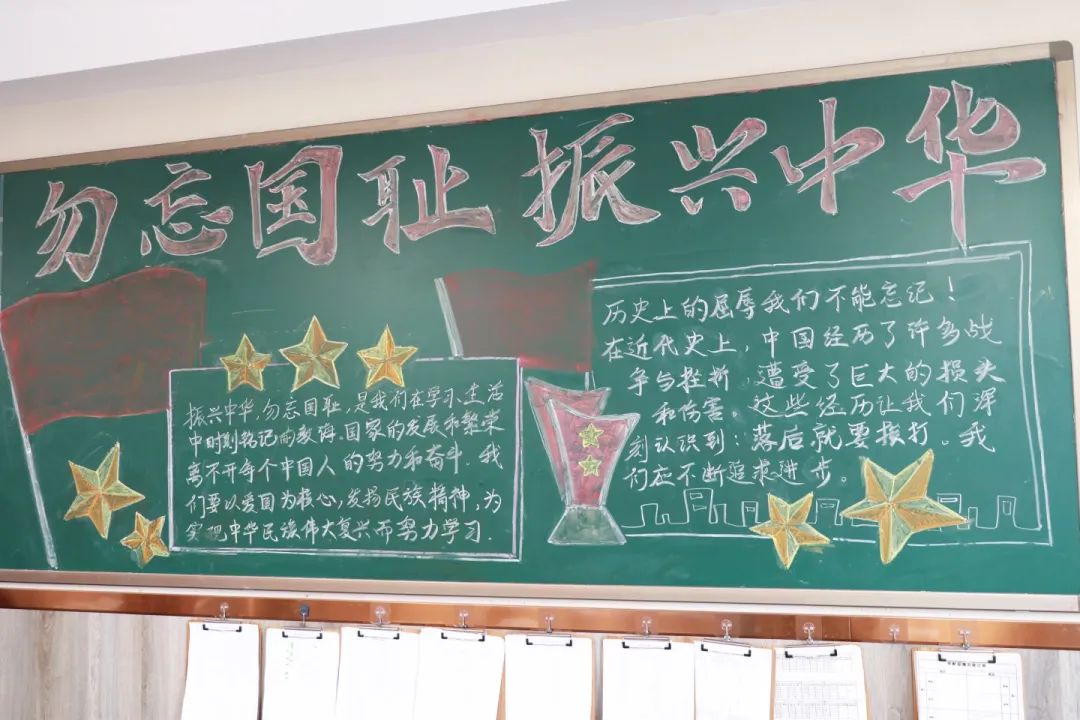 勿忘国耻 振兴中华
振兴中华,勿忘国耻,是我们在学习、生活
中时刻铭记的教诲.国家的发展和繁荣
离不开每个中国人的努力和奋斗.我
们要以爱国为核心,发扬民族精神,为
实现中华民族伟大复兴而努力学习.
历史上的屈辱我们不能忘记!
在近代史上,中国经历了许多战
争与挫折 遭受了巨大的损失
和伤害。这些经历让我们深
刻认识到:落后就要挨打。我
们应不断追求进步。